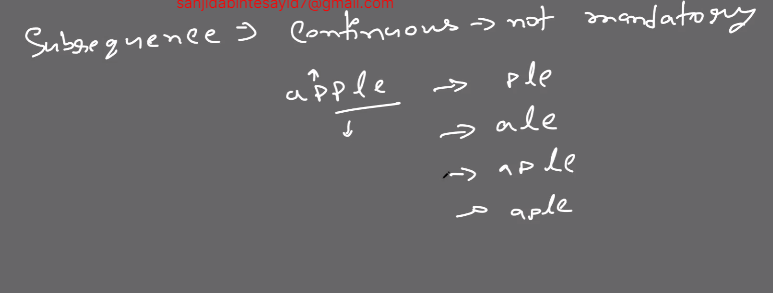 sanjidabintesayid7@gmail.com
Subsequence → Continuous → not mandatory
apple → ple
→ ale
→ aple
→ aple